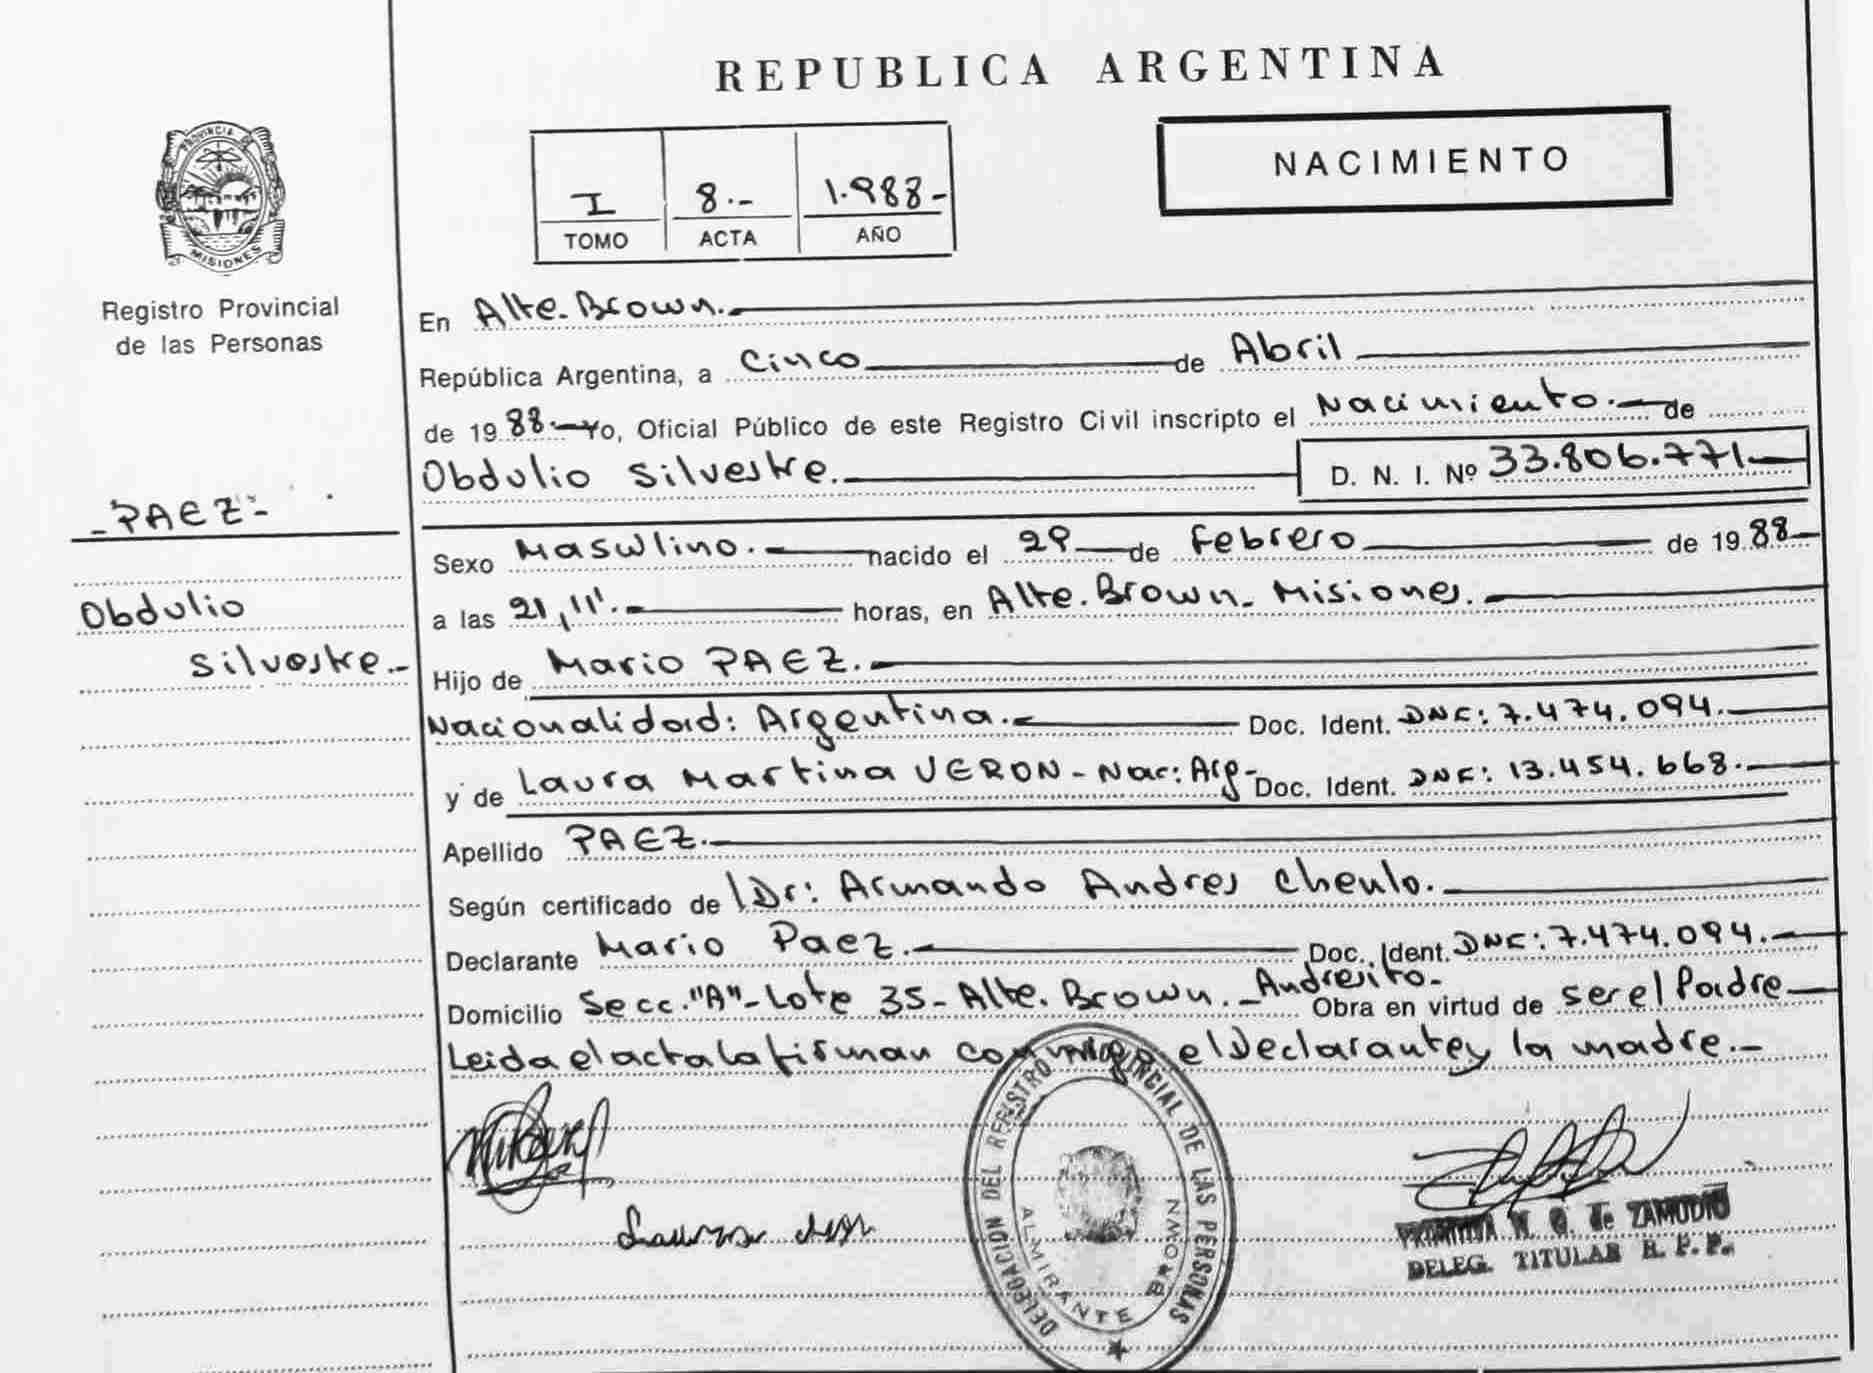 REPUBLICA ARGENTINA
PROVINCIA DE
MISIONES
Registro Provincial
de las Personas
I 8.- 1.988-
TOMO ACTA AÑO
NACIMIENTO
En Alte. Brown.
República Argentina, a Cinco de Abril
de 1988.- Yo, Oficial Público de este Registro Civil inscripto el Nacimiento.- de
Obdulio Silvestre. D. N. I. Nº 33.806.771
-PAEZ-
Obdulio
Silvestre.-
Sexo Masculino. nacido el 29 de Febrero de 1988
a las 21,11'. horas, en Alte. Brown- Misiones.
Hijo de Mario PAEZ.
Nacionalidad: Argentina. Doc. Ident. DNI: 7.474.094.
y de Laura Martina VERON - Nac: Arg- Doc. Ident. DNI: 13.454.668.
Apellido PAEZ.
Según certificado de Dr: Armando Andres Chenlo.
Declarante Mario Paez. Doc. Ident. DNI: 7.474.094.
Domicilio Secc. "A"- Lote 35- Alte. Brown.- Andresito- Obra en virtud de ser el Padre
Leida el acta la firman conmigo el Declarante y la madre.-
DELEGACION DEL REGISTRO PROVINCIAL DE LAS PERSONAS
ALMIRANTE BROWN
de ZAMUDIO
DELEG. TITULAR R. P. P.